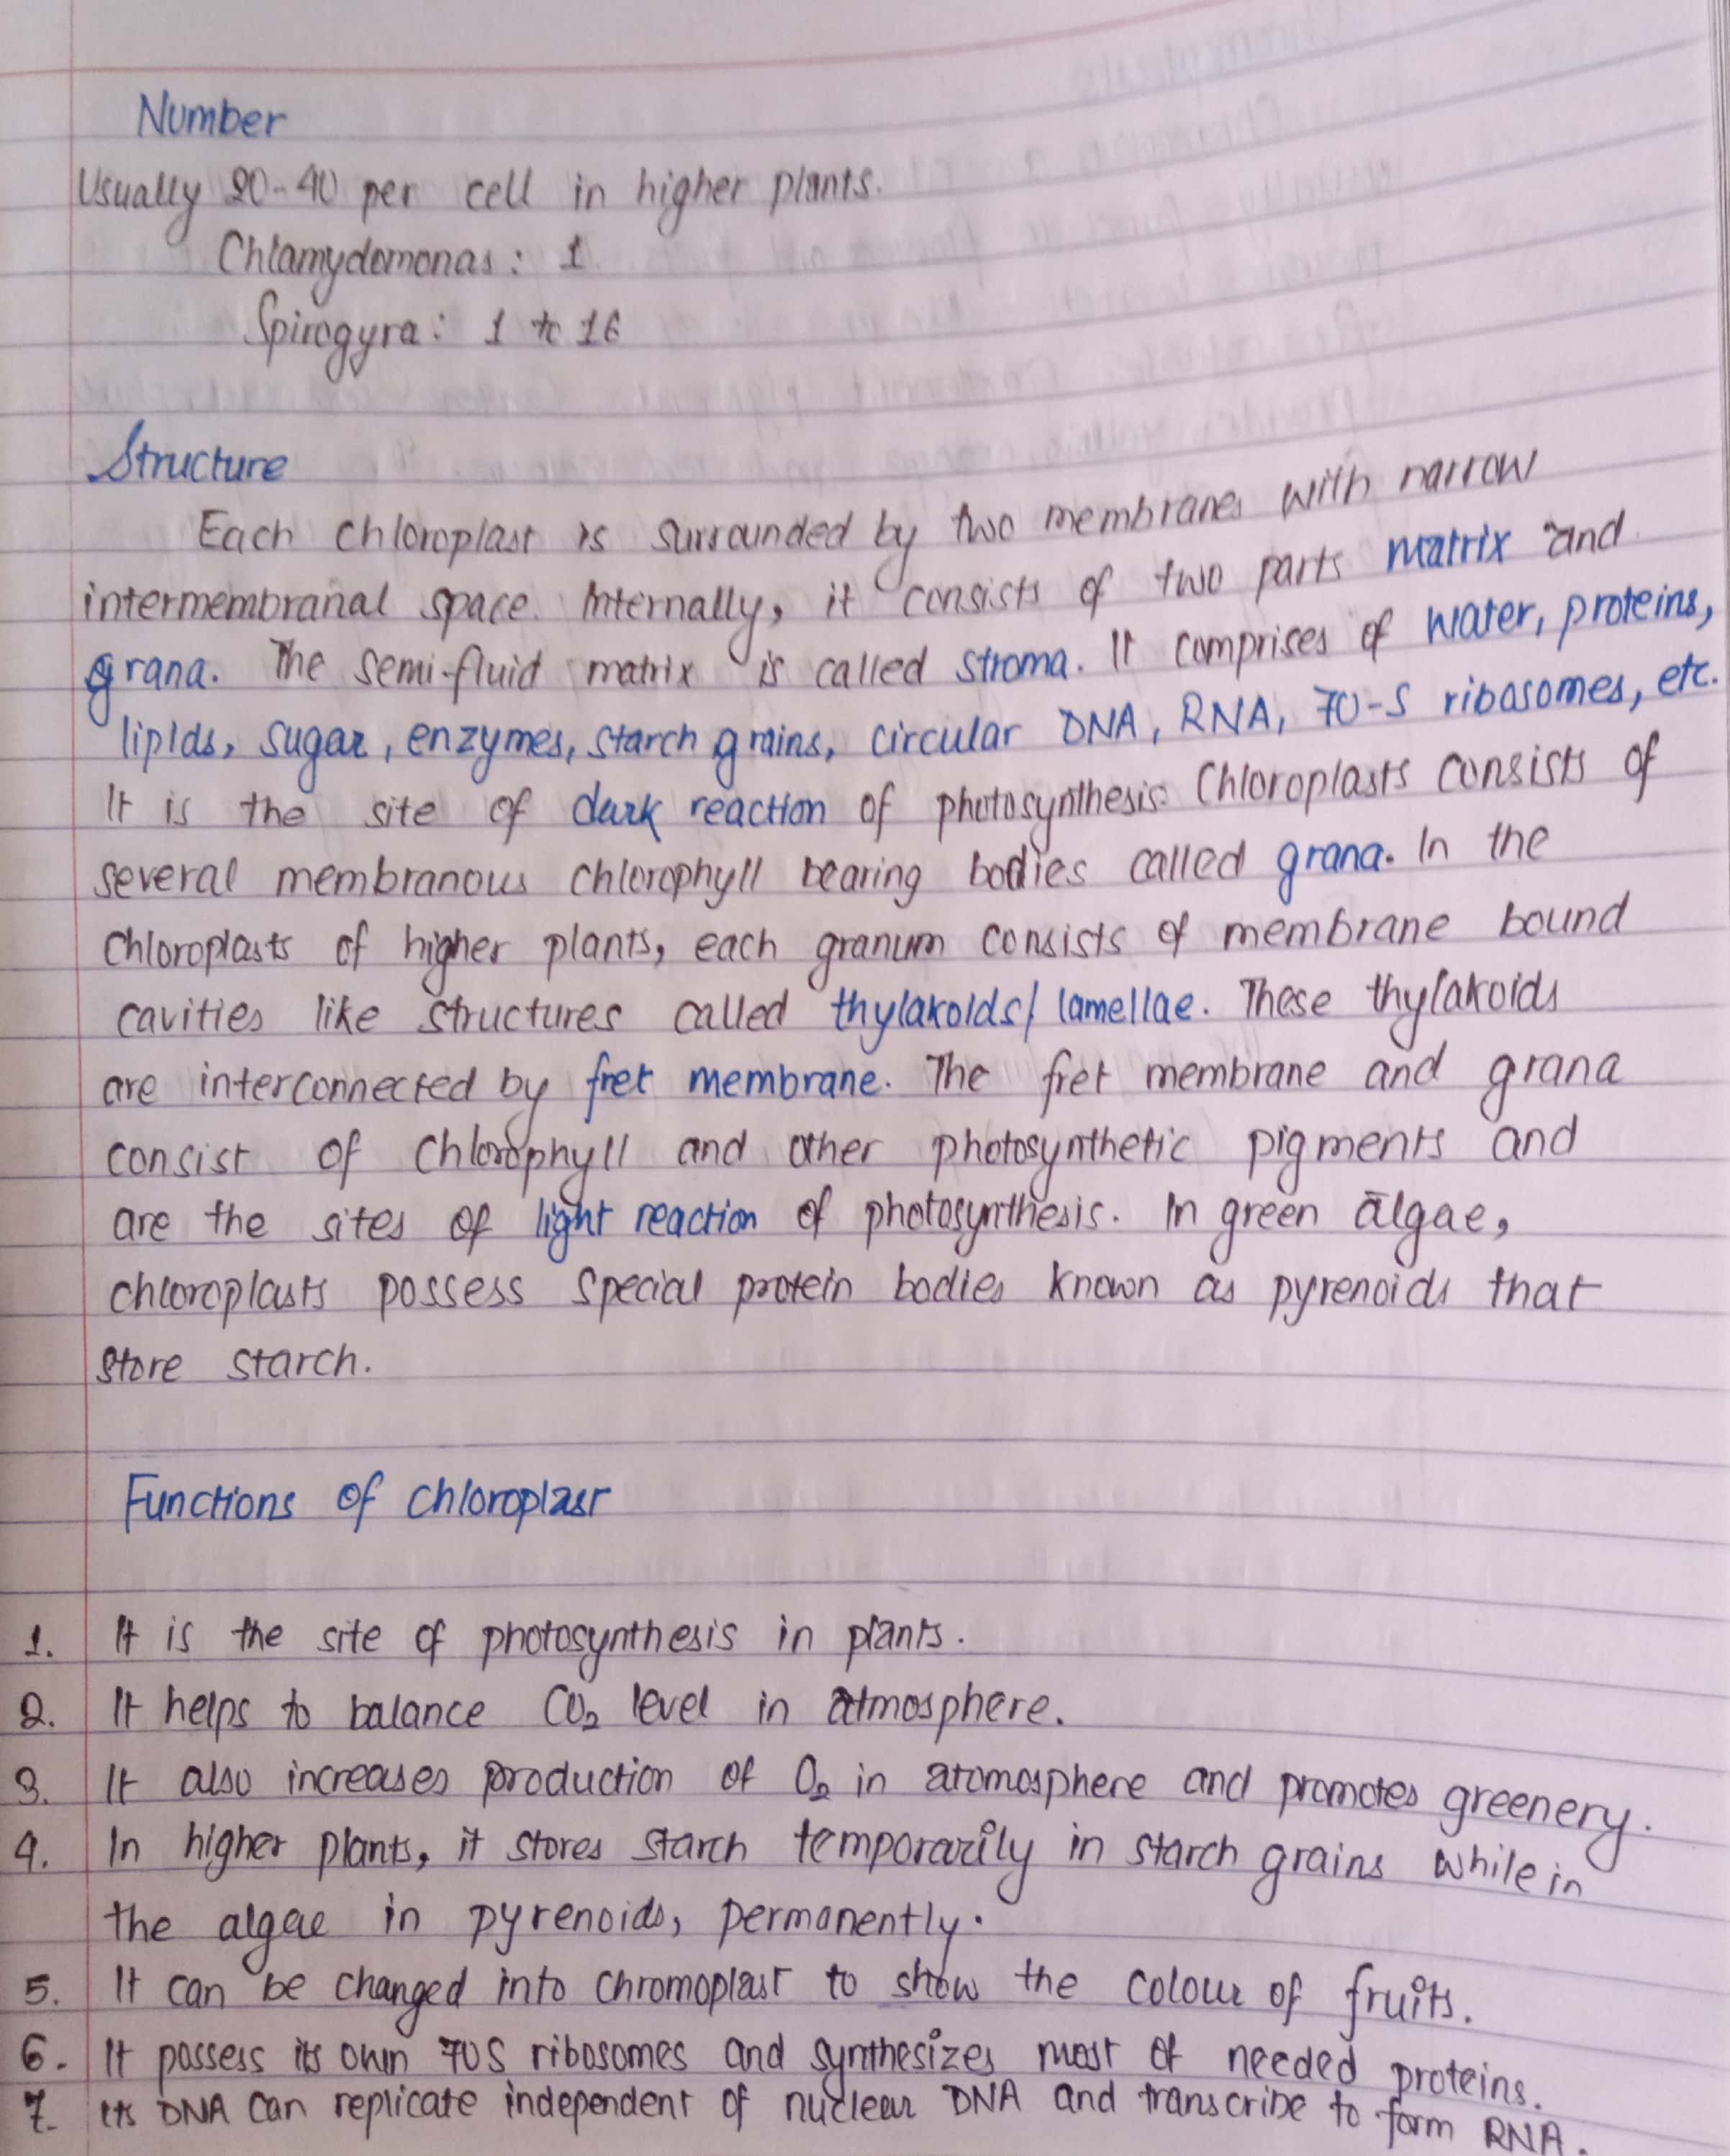 Number
Usually 20-40 per cell in higher plants.
Chlamydomonas: 1
Spirogyra: 1 to 16
Structure
Each chloroplast is surrounded by two membranes with narrow
intermembranal space. Internally, it consists of two parts matrix and
grana. The semi-fluid matrix is called stroma. It comprises of water, proteins,
lipids, sugar, enzymes, starch grains, circular DNA, RNA, 70-S ribosomes, etc.
It is the site of dark reaction of photosynthesis. Chloroplasts consists of
several membranous chlorophyll bearing bodies called grana. In the
chloroplasts of higher plants, each granum consists of membrane bound
cavities like structures called thylakoids/ lamellae. These thylakoids
are interconnected by fret membrane. The fret membrane and grana
consist of chlorophyll and other photosynthetic pigments and
are the sites of light reaction of photosynthesis. In green algae,
chloroplasts possess special protein bodies known as pyrenoids that
store starch.
Functions of chloroplast
1. It is the site of photosynthesis in plants.
2. It helps to balance CO₂ level in atmosphere.
3. It also increases production of O₂ in atomosphere and promotes greenery.
4. In higher plants, it stores starch temporarily in starch grains while in
the algae in pyrenoids, permanently.
5. It can be changed into chromoplast to show the colour of fruits.
6. It possess its own 70S ribosomes and synthesizes most of needed proteins.
7. Its DNA can replicate independent of nuclear DNA and transcribe to form RNA.